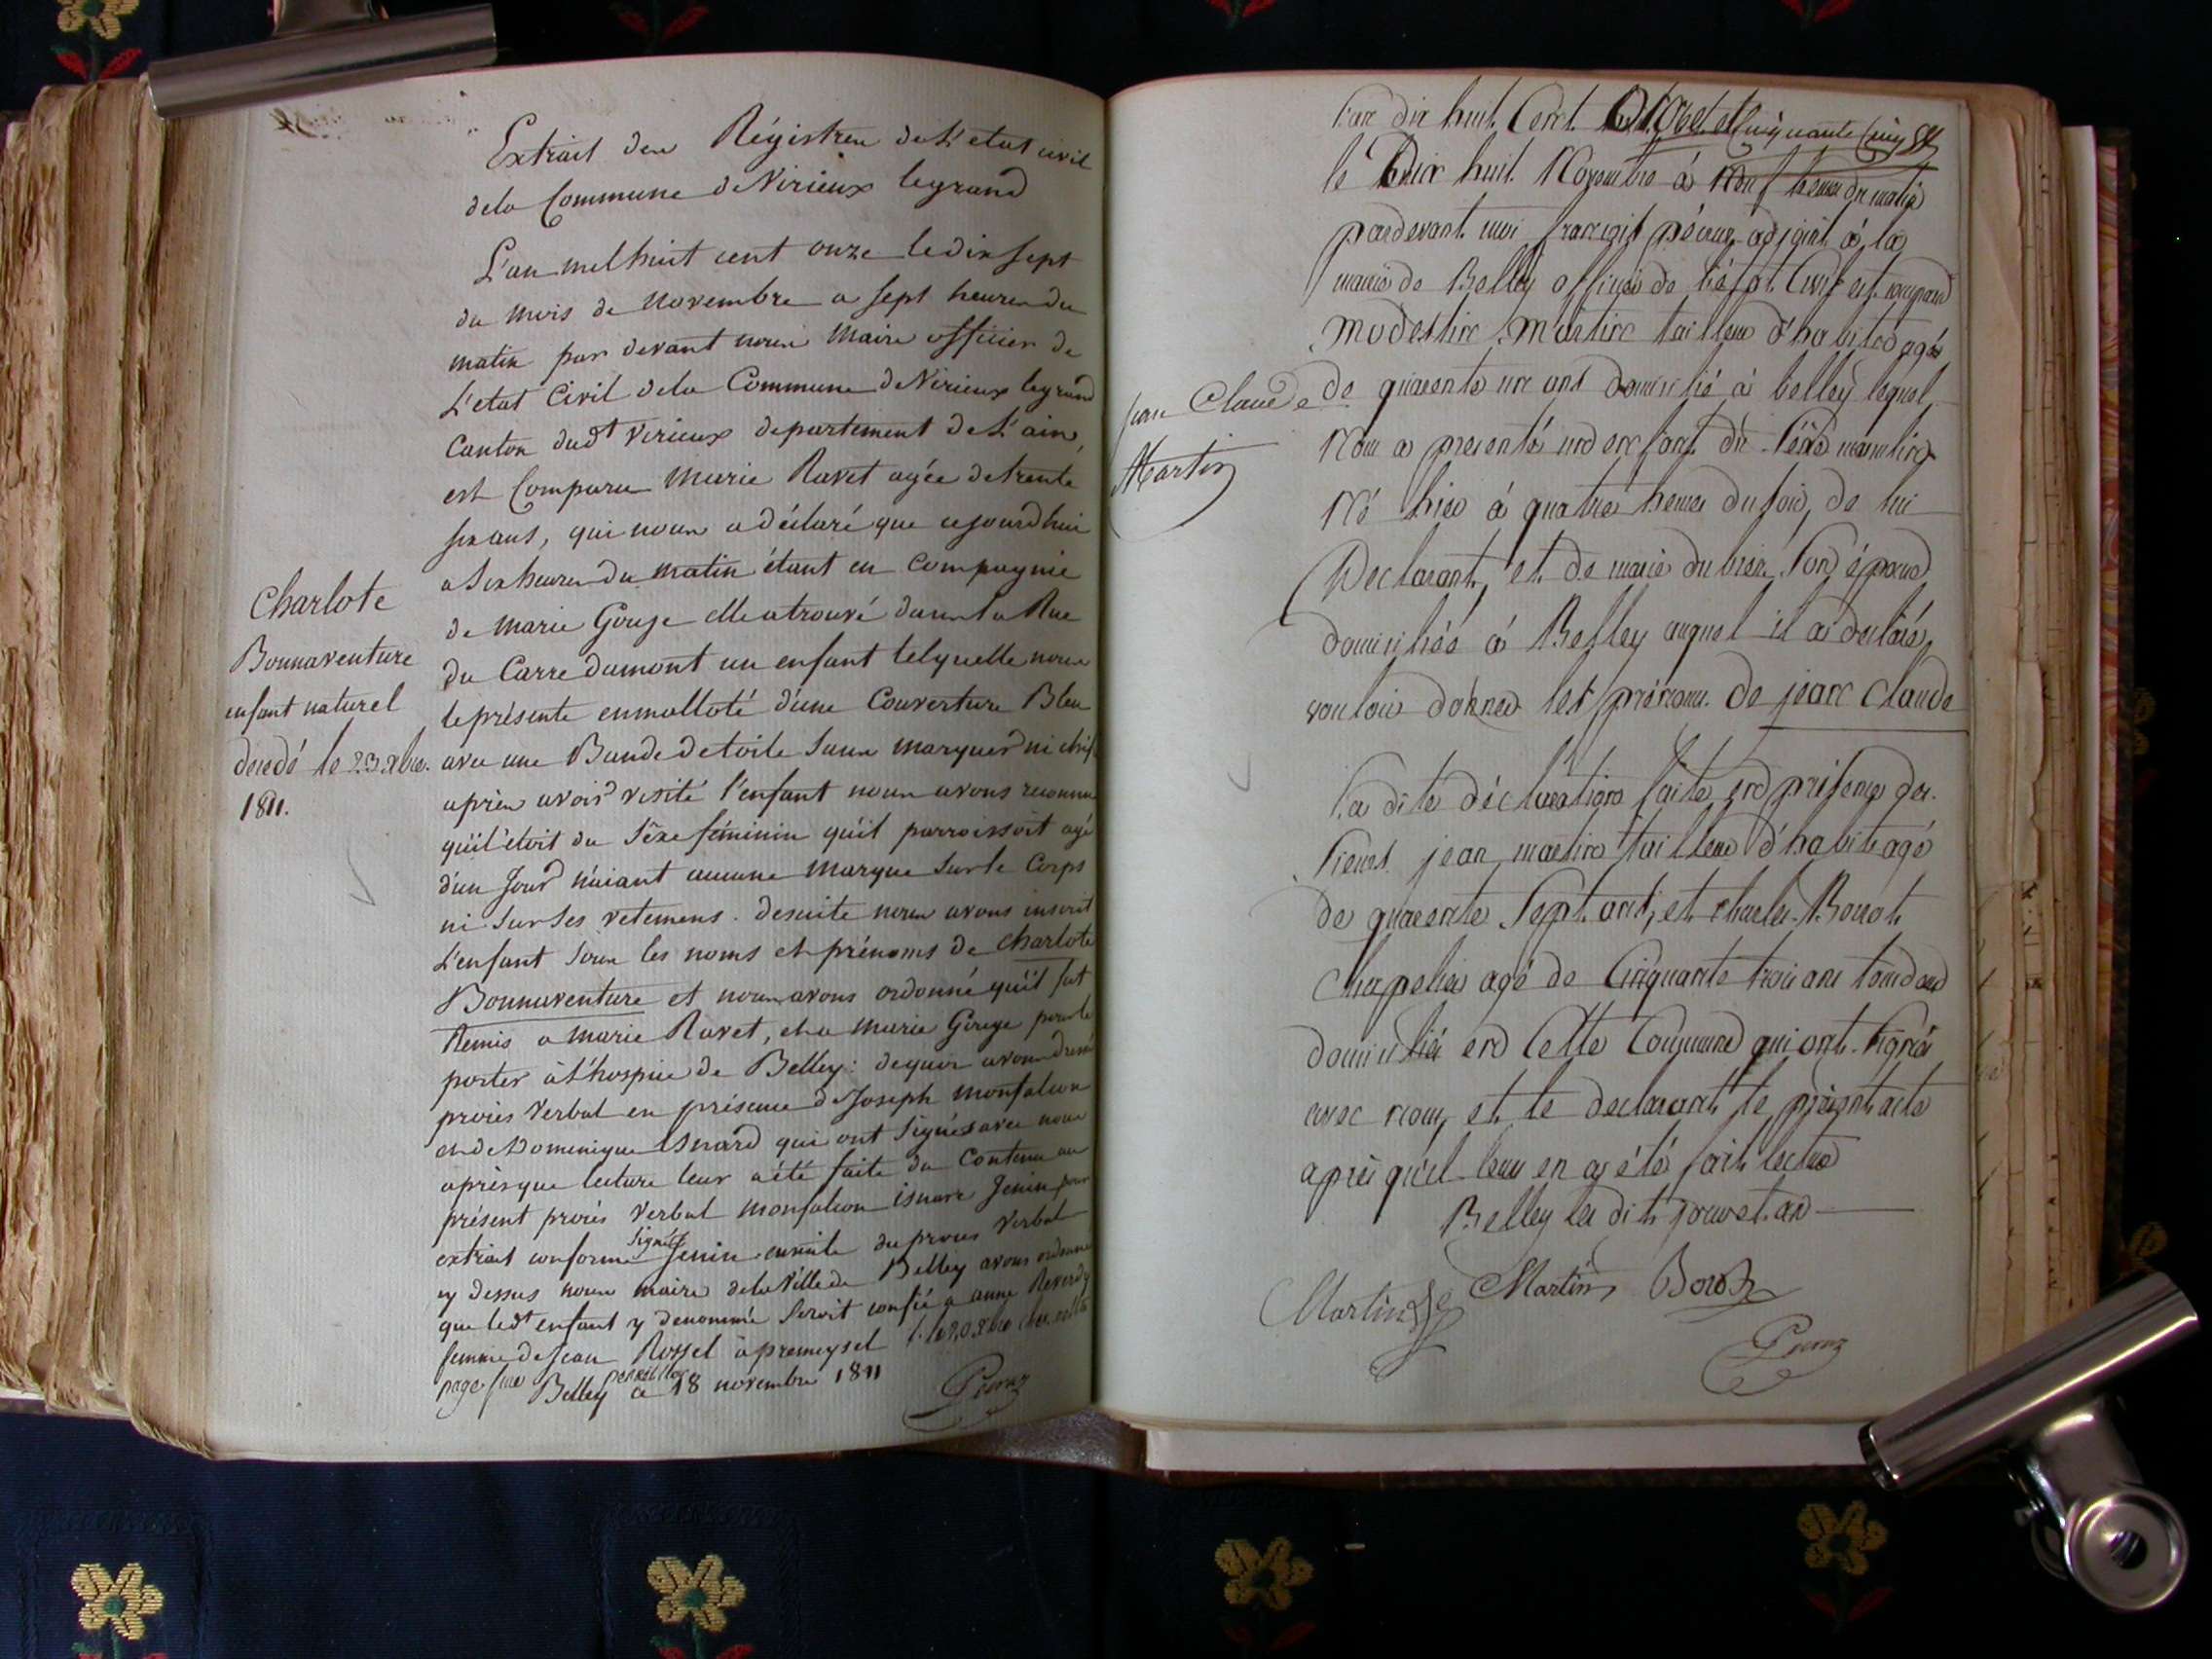 Extrait des Régistres de L'etat civil
dela Commune de Virieux legrand
L'an mil huit cent onze le dix sept
du mois de Novembre a sept heures du
matin par devant nous Maire officier de
L'etat Civil dela Commune de Virieux legrand
Canton dudt Virieux departement de L'ain,
est Comparu Marie Ravet agée de trente
six ans, qui nous a déclaré que cejourdhui
a Six heures du matin étant en Compagnie
de Marie Gouge elle a trouvé dans la Rue
du Carre dumont un enfant telquelle nous
le présente enmalloté d'une Couverture Bleu
avec une Bande de toile sans marques ni chif
après avoir visité l'enfant nous avons reconnu
qu'il étoit du Sêxe féminin qu'il parroissoit agé
d'un Jour n'aiant aucune Marque Sur le Corps
ni Sur Ses vetemens. desuite nous avons inscrit
L'enfant Sous les noms et prénoms de Charlote
Bonnaventure et nous avons ordonné qu'il fut
Remis a Marie Ravet, et a Marie Gouge pour le
porter à l'hospice de Belley: dequoi avons dressé
procès Verbal en présence de Joseph Monfalcon
et de Dominique Isnard qui ont Signés avec nous
après que lecture leur a été faite du Contenu au
présent procès Verbal Monfalcon isnard Jenin pour
extrait conforme Signé Jenin ensuite du procès Verbal
cy dessus nous maire dela Ville de Belley avons ordonné
que ledt enfant y denommé Seroit confié a anne Reverdy
femme de Jean Rossel à premeysel
Belley ce 18 novembre 1811
Charlote
Bonnaventure
enfant naturel
décédé le 23 xbre.
1811.
L'an dix huit Cent Onze et Cinquante Cinq
le Dix huit Novembre à Neuf heures du matin
pardevant moi françois péroux adjoint à la
mairie de Belley officier de l'état Civil est comparu
Modeste Martin tailleur d'habits agé
de quarente un ans domicilié à belley lequel
Nous a presenté un enfant du Sexe masculin
Né hier à quatre heures du soir, de lui
Declarant, et de marie dubien Son épouse
domiciliés à Belley auquel il a declaré
vouloir donner les prénoms de jean Claude
La dite déclaration faite en présence des
Sieurs jean martin tailleur d'habits agé
de quarente Sept ans, et Charles Borrot
Chapelier agé de Cinquante trois ans tous deux
domiciliés en Cette Commune qui ont Signés
avec nous et le declarant le présent acte
après qu'il leur en a été fait lecture
Belley les dits jour et an
Jean Claude
Martin
Martin Martin